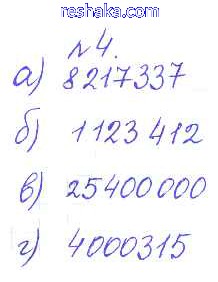 reshaka.com
№4.
а) 8217337
б) 1123 412
в) 25400 000
г) 4000315